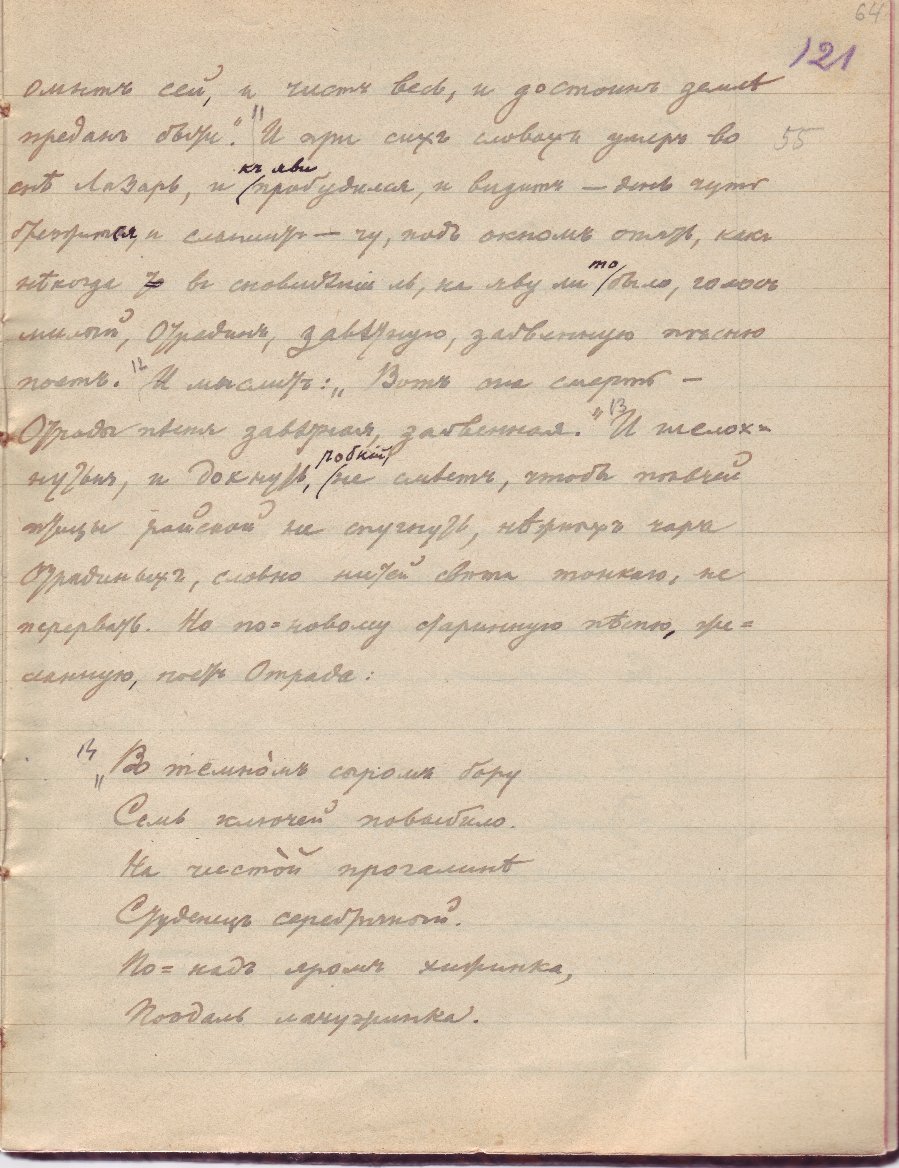 64
121
омытъ сей, и чистъ весь, и достоинъ землѣ
преданъ быти." 11 И при сихъ словахъ умеръ во
55
снѣ Лазарь, и къ яви пробудился, и видитъ — день чуть
брезжится, и слышитъ — чу, подъ окномъ опять, какъ
нѣкогда въ сновидѣніи ль, на яву ли то было, голосъ
милый, Отрадинъ, завѣтную, забвенную пѣсню
поетъ. 12 И мыслитъ: „Вотъ та смерть —
Отрады пѣсня завѣтная, забвенная." 13 И шелох=
нуться, и дохнуть, робкій, не смѣетъ, чтобы пѣвчей
птицы райской не спугнуть, нѣжныхъ чаръ
Отрадиныхъ, словно нитей свѣта тонкаго, не
перервать. Но по=новому старинную пѣсню, же=
ланную, поетъ Отрада:
14 „Во тёмномъ сыромъ бору
Семь ключей повыбило.
На чистой прогалинѣ
Студенецъ серебряный.
По=надъ яромъ хижинка,
Поодаль лачужинка.